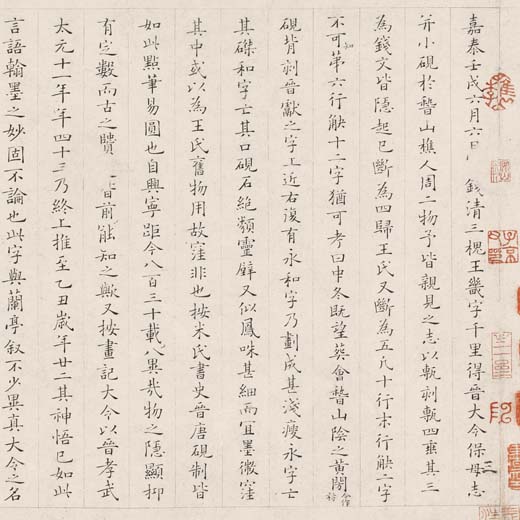 嘉泰壬戌六月六日 錢清三槐王畿字千里得晉大令保母志
并小硯於嵆山樵人周二物予皆親見之志以甎刻甎四垂其三
為錢文皆隱起已斷為四歸王氏又斷為五凡十行末行缺二字
不可知第六行缺十二字猶可考曰中冬既望葬會嵆山陰之黃閍
硯背刻晉獻之字上近右復有永和字乃劃成甚淺瘦永字亡
其磔和字亡其口硯石絶類靈壁又似鳳咮甚細而宜墨微窪
其中或以為王氏舊物用故窪非也按米氏書史晉唐硯制皆
如此點筆易圓也自興寧距今八百三十載八異哉物之隱顯抑
有定數而古之賾 前能知之歟又按畫記大令以晉孝武
太元十一年年四十三乃終上推至乙丑歲年廿二其神悟已如此
言語翰墨之妙固不論也此字與蘭亭敘不少異真大令之名